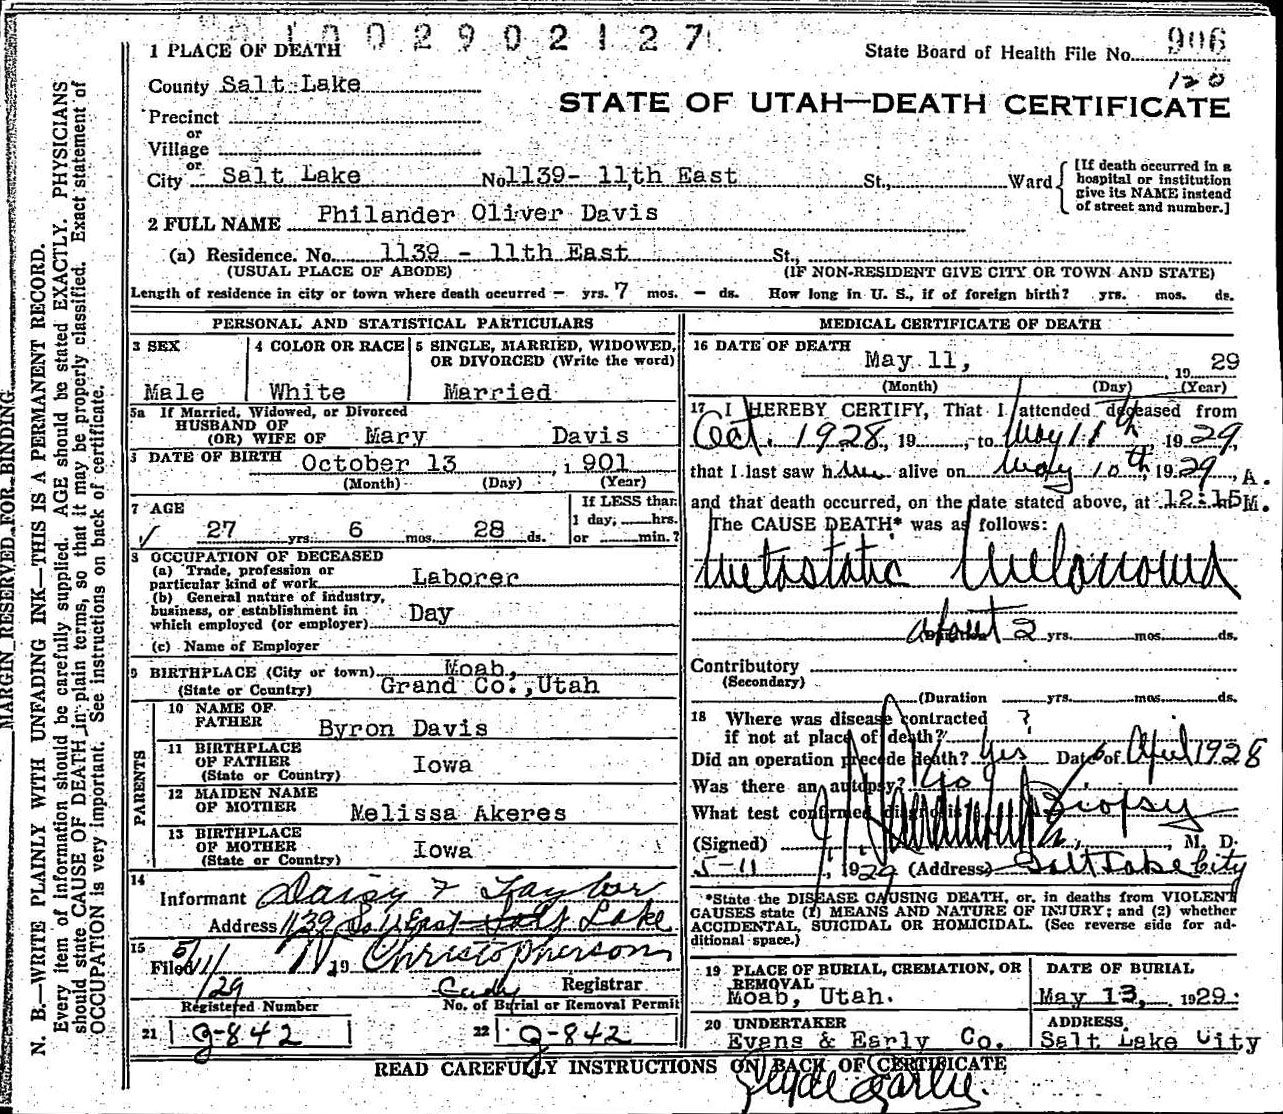 0 1 0 0 2 9 0 2 1 2 7
1 PLACE OF DEATH
State Board of Health File No. 906
120
County Salt Lake
STATE OF UTAH—DEATH CERTIFICATE
Precinct
or
Village
or
City Salt Lake No. 1139- 11th East St., Ward
[If death occurred in a
hospital or institution
give its NAME instead
of street and number.]
2 FULL NAME Philander Oliver Davis
(a) Residence. No. 1139 - 11th East St.,
(USUAL PLACE OF ABODE) (IF NON-RESIDENT GIVE CITY OR TOWN AND STATE)
Length of residence in city or town where death occurred - yrs. 7 mos. - ds. How long in U. S., if of foreign birth? yrs. mos. ds.
PERSONAL AND STATISTICAL PARTICULARS
3 SEX
Male
4 COLOR OR RACE
White
5 SINGLE, MARRIED, WIDOWED,
OR DIVORCED (Write the word)
Married
5a If Married, Widowed, or Divorced
HUSBAND OF
(OR) WIFE OF Mary Davis
DATE OF BIRTH October 13 , 1901
(Month) (Day) (Year)
7 AGE
27 yrs. 6 mos. 28 ds.
If LESS than
1 day, hrs.
or min.?
8 OCCUPATION OF DECEASED
(a) Trade, profession or
particular kind of work Laborer
(b) General nature of industry,
business, or establishment in
which employed (or employer) Day
(c) Name of Employer
9 BIRTHPLACE (City or town) Moab,
(State or Country) Grand Co., Utah
PARENTS
10 NAME OF
FATHER
Byron Davis
11 BIRTHPLACE
OF FATHER
(State or Country) Iowa
12 MAIDEN NAME
OF MOTHER
Melissa Akeres
13 BIRTHPLACE
OF MOTHER
(State or Country) Iowa
14
Informant Daisy F Taylor
Address 1139 So 11 East Salt Lake
15
Filed 5/11/29 19 Christopherson
Registrar
Registered Number
No. of Burial or Removal Permit
21 G-842
22 G-842
MEDICAL CERTIFICATE OF DEATH
16 DATE OF DEATH
May 11, 1929
(Month) (Day) (Year)
17 I HEREBY CERTIFY, That I attended deceased from
Oct. 1928, 19 , to May 11th, 1929,
that I last saw him alive on May 10th, 1929,
and that death occurred, on the date stated above, at 12:15 A.M.
The CAUSE DEATH* was as follows:
Metastatic Melanoma
about 2 yrs. mos. ds.
Contributory
(Secondary)
(Duration yrs. mos. ds.
18 Where was disease contracted
if not at place of death? ?
Did an operation precede death? Yes Date of April 1928
Was there an autopsy? No
What test confirmed diagnosis Biopsy
(Signed) , M. D.
5-11, 1929 (Address) Salt Lake City
*State the DISEASE CAUSING DEATH, or, in deaths from VIOLENT
CAUSES state (1) MEANS AND NATURE OF INJURY; and (2) whether
ACCIDENTAL, SUICIDAL OR HOMICIDAL. (See reverse side for ad-
ditional space.)
19 PLACE OF BURIAL, CREMATION, OR
REMOVAL
Moab, Utah.
DATE OF BURIAL
May 13, 1929.
20 UNDERTAKER
Evans & Early Co.
ADDRESS
Salt Lake City
READ CAREFULLY INSTRUCTIONS ON BACK OF CERTIFICATE
Clyde Earlie.
MARGIN RESERVED FOR BINDING
N. B.—WRITE PLAINLY WITH UNFADING INK—THIS IS A PERMANENT RECORD.
Every item of information should be carefully supplied. AGE should be stated EXACTLY. PHYSICIANS
should state CAUSE OF DEATH in plain terms, so that it may be properly classified. Exact statement of
OCCUPATION is very important. See instructions on back of certificate.